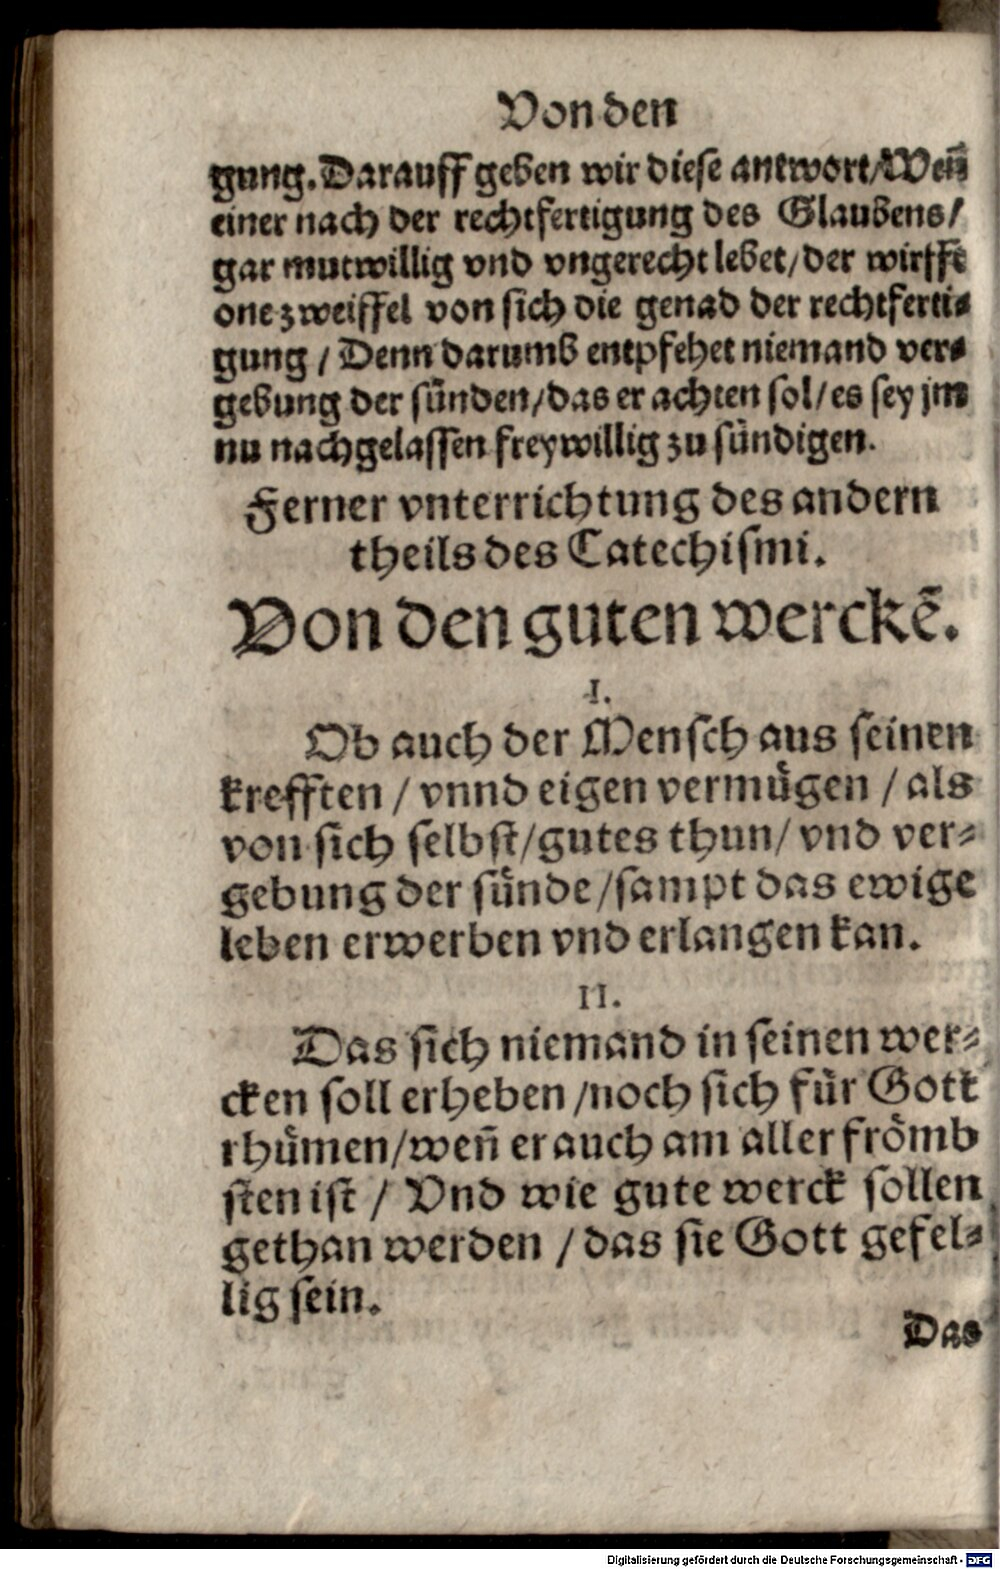 Von den
gung. Darauff geben wir diese antwort/Weñ
einer nach der rechtfertigung des Glaubens/
gar mutwillig vnd vngerecht lebet/der wirfft
one zweiffel von sich die genad der rechtferti⸗
gung / Denn darumb entpfehet niemand ver⸗
gebung der sünden/das er achten sol/es sey jm
nu nachgelassen freywillig zu sündigen.
Ferner vnterrichtung des andern
theils des Catechismi.
Von den guten werckẽ.
I.
Ob auch der Mensch aus seinen
krefften / vnnd eigen vermügen / als
von sich selbst/gutes thun/ vnd ver⸗
gebung der sünde/sampt das ewige
leben erwerben vnd erlangen kan.
II.
Das sich niemand in seinen wer⸗
cken soll erheben/noch sich für Gott
rhümen/weñ er auch am aller frömb
sten ist / Vnd wie gute werck sollen
gethan werden / das sie Gott gefel⸗
lig sein.
Das
Digitalisierung gefördert durch die Deutsche Forschungsgemeinschaft - DFG